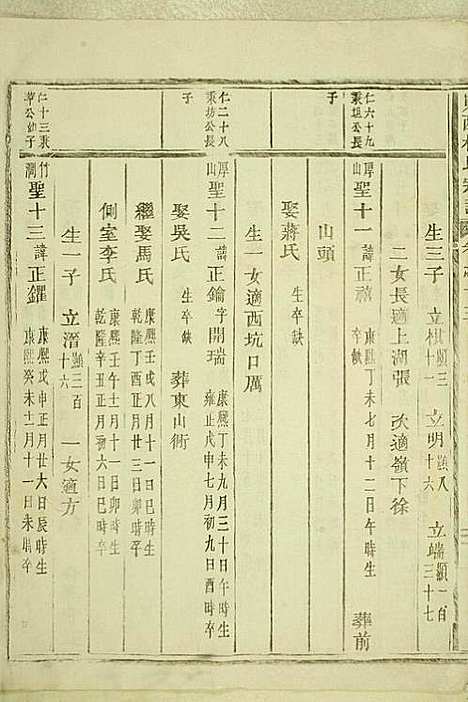 生三子 立棋顯三十一 立明顯八十六 立端顯一百三十七
二女長適上湖張 次適嶺下徐
仁六十九秉垣公長子
厚山聖十一諱正禧 康熙丁未七月十二日午時生 卒缺 葬前
山頭
娶蔣氏 生卒缺
生一女適西坑口厲
仁二十八秉坊公長子
厚山聖十二諱正鑰字開瑞 康熙丁未九月三十日午時生 雍正戊申七月初九日酉時卒
娶吳氏 生卒缺 葬東山衕
繼娶馬氏 康熙壬戌八月十一日巳時生 乾隆丁酉二月廿一日卯時卒
側室李氏 康熙壬午十一月十一日卯時生 乾隆辛丑正月十六日巳時卒
生一子 立溍顯二百十六 一女適方
仁十三秉華公幼子
竹澗聖十三諱正鑼 康熙戊申正月廿六日辰時生 康熙癸未十二月十一日未時卒